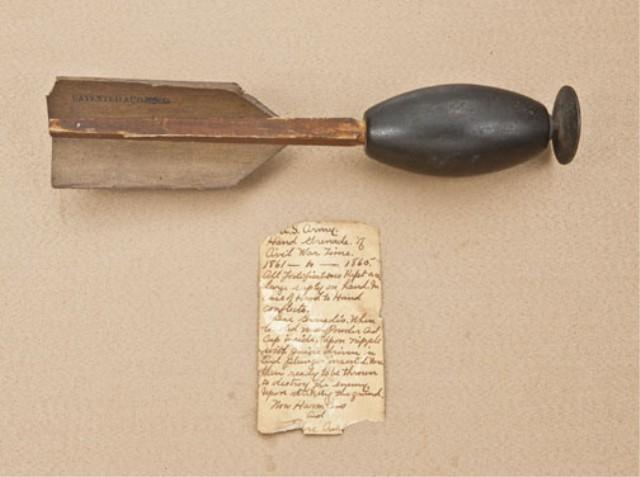 PATENTED AUG
U.S. Army.
Hand Grenade. of
Civil War Time.
1861 — to — 1865
All fortifications Kept a
large suply on hand. In
case of Hand to Hand
conflicts.
When
Powder And
Cap inside. Upon nipple
with driven in
And Plunger inserted.
then ready to be thrown
to destroy the enemy
Upon striking the ground.
Now Harmless
And